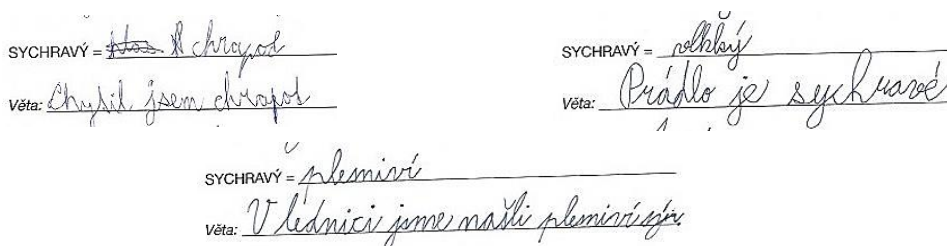 SYCHRAVÝ = chrapot
Věta: Chytil jsem chrapot
SYCHRAVÝ = vlhký
Věta: Prádlo je sychravé
SYCHRAVÝ = plemiví
Věta: V lednici jsme našli plemiví sýr